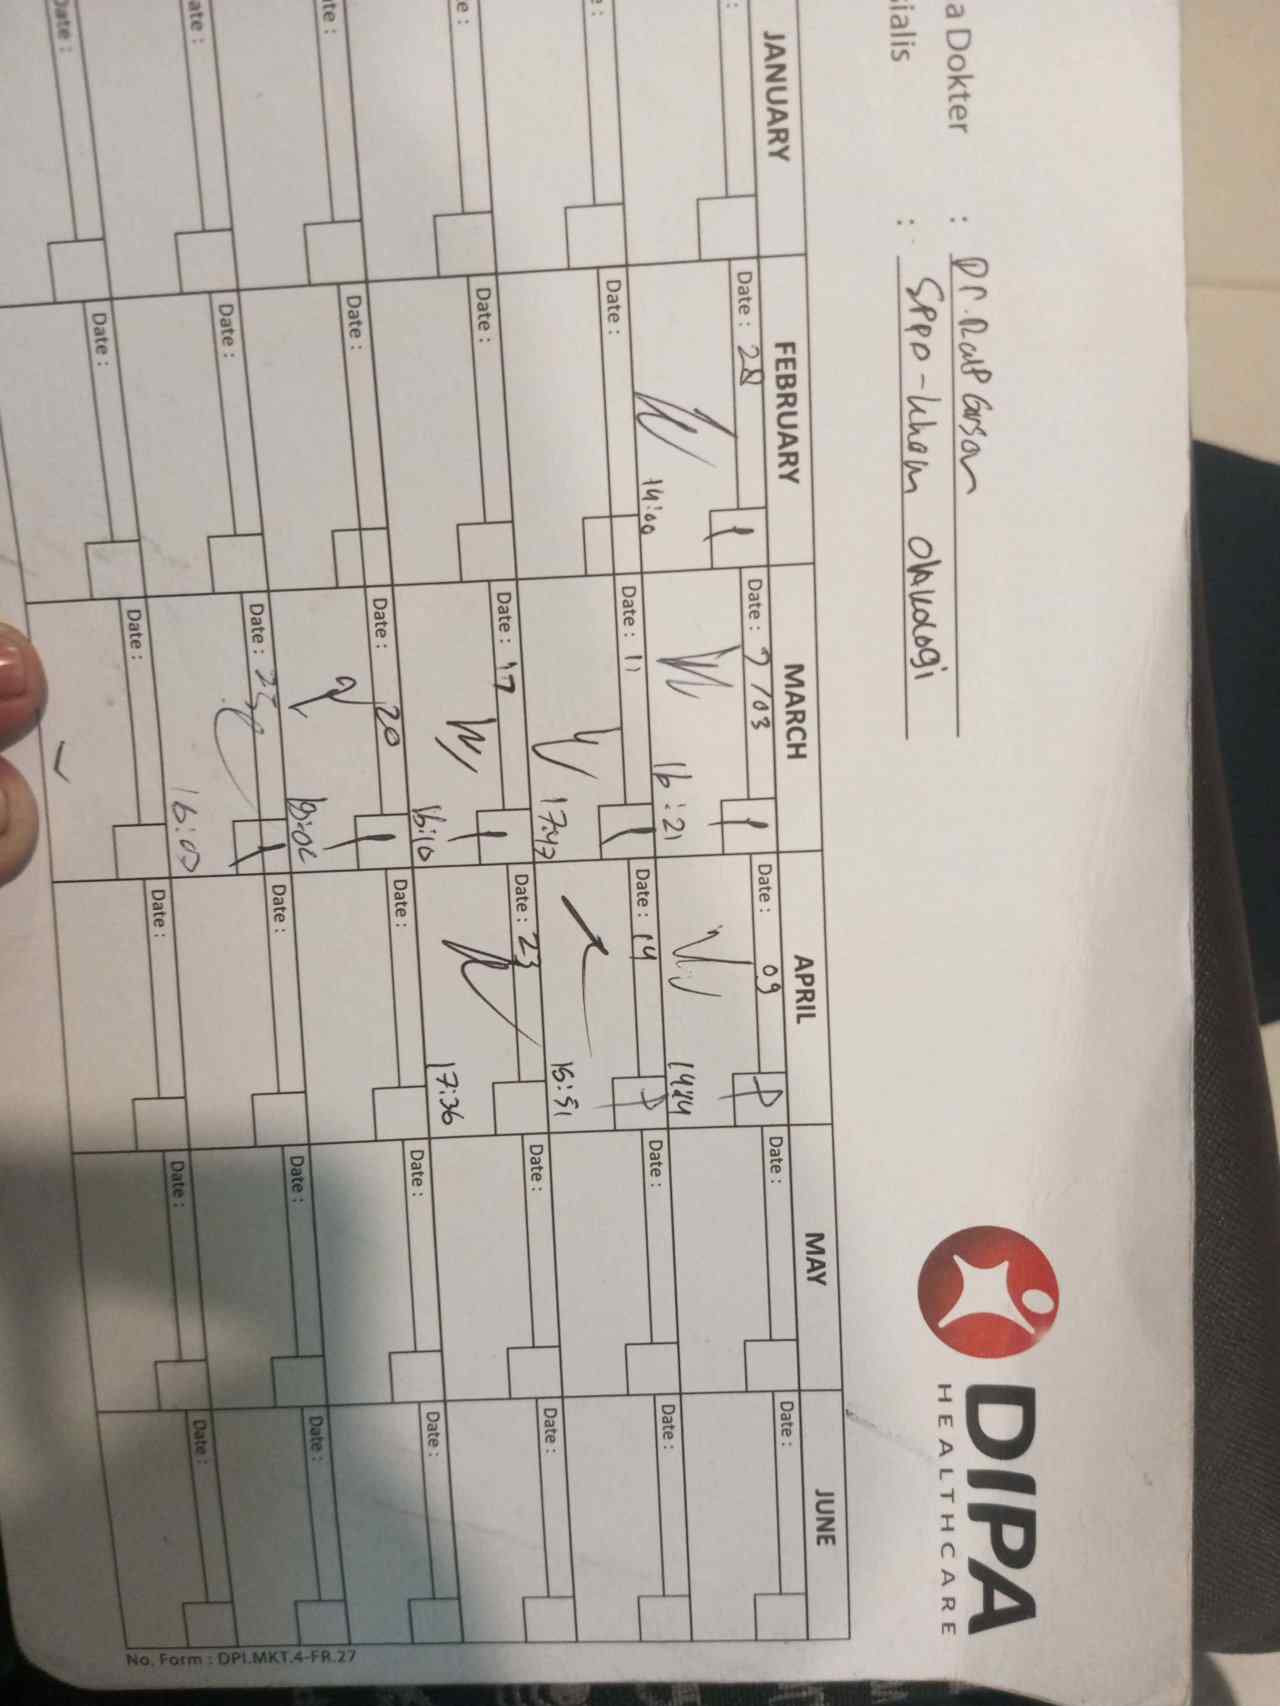 DIPA
HEALTHCARE
a Dokter : Dr. Ralp Girson
ialis : SPPD - khom onkologi
JANUARY FEBRUARY MARCH APRIL MAY JUNE
: Date : 28 Date : 7/03 Date : 09 Date : Date :
14:00 16:21 14:14
e : Date : Date : 11 Date : 14 Date : Date :
17:47 15:51
e : Date : Date : 17 Date : 23 Date : Date :
16:10 17:36
te : Date : Date : 20 Date : Date : Date :
ate : Date : Date : 25 Date : Date : Date :
16:07
Date : Date : Date : Date : Date : Date :
No. Form : DPI.MKT.4-FR.27